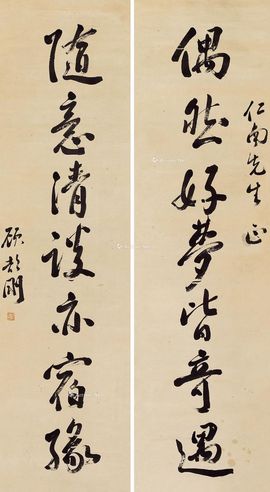 仁南先生正
偶然好夢皆奇遇
隨意清談亦宿緣